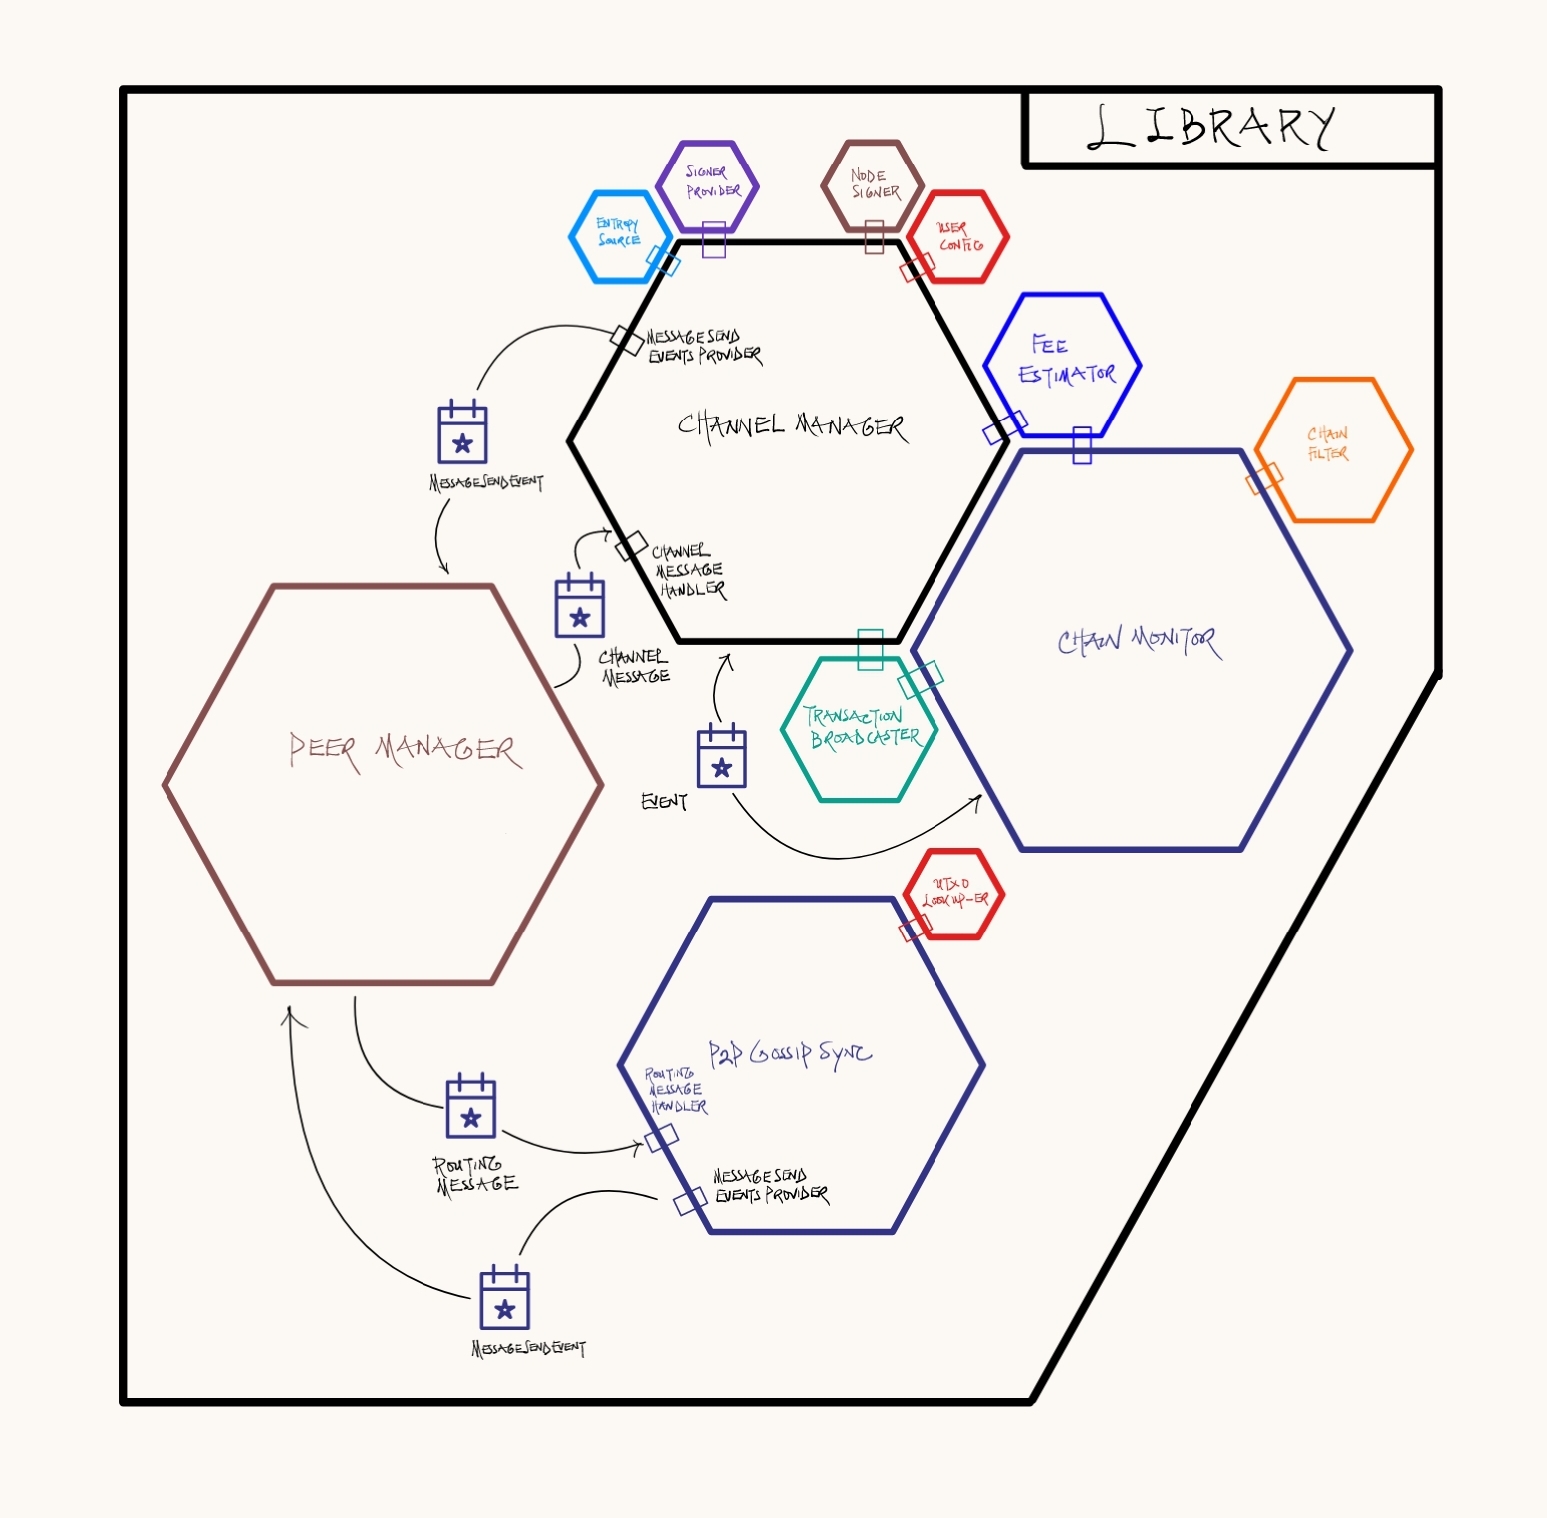 LIBRARY
SIGNER
PROVIDER
NODE
SIGNER
ENTROPY
SOURCE
USER
CONFIG
MESSAGESEND
EVENTS PROVIDER
FEE
ESTIMATOR
CHANNEL MANAGER
CHAIN
FILTER
MESSAGESENDEVENT
CHANNEL
MESSAGE
HANDLER
CHANNEL
MESSAGE
CHAIN MONITOR
TRANSACTION
BROADCASTER
PEER MANAGER
EVENT
UTXO
LOOKUP-ER
P2P GOSSIP SYNC
ROUTING
MESSAGE
HANDLER
ROUTING
MESSAGE
MESSAGESEND
EVENTS PROVIDER
MESSAGESENDEVENT